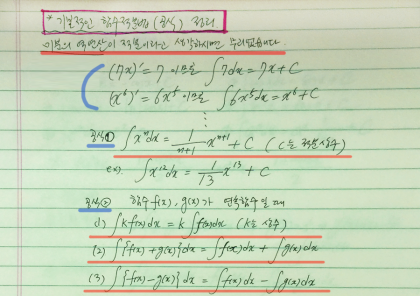 * 기본적인 함수 적분법 (공식) 정리
미분의 역연산이 적분이라고 생각하시면 무리없습니다.
(7x)' = 7 이므로 ∫7dx = 7x + C
(x⁶)' = 6x⁵ 이므로 ∫6x⁵dx = x⁶ + C
⋮
공식① ∫xⁿdx = 1/(n+1) xⁿ⁺¹ + C (C는 적분상수)
ex) ∫x¹²dx = 1/13 x¹³ + C
공식② 함수 f(x), g(x)가 연속함수일 때
(1) ∫kf(x)dx = k∫f(x)dx (k는 상수)
(2) ∫{f(x)+g(x)}dx = ∫f(x)dx + ∫g(x)dx
(3) ∫{f(x)-g(x)}dx = ∫f(x)dx - ∫g(x)dx